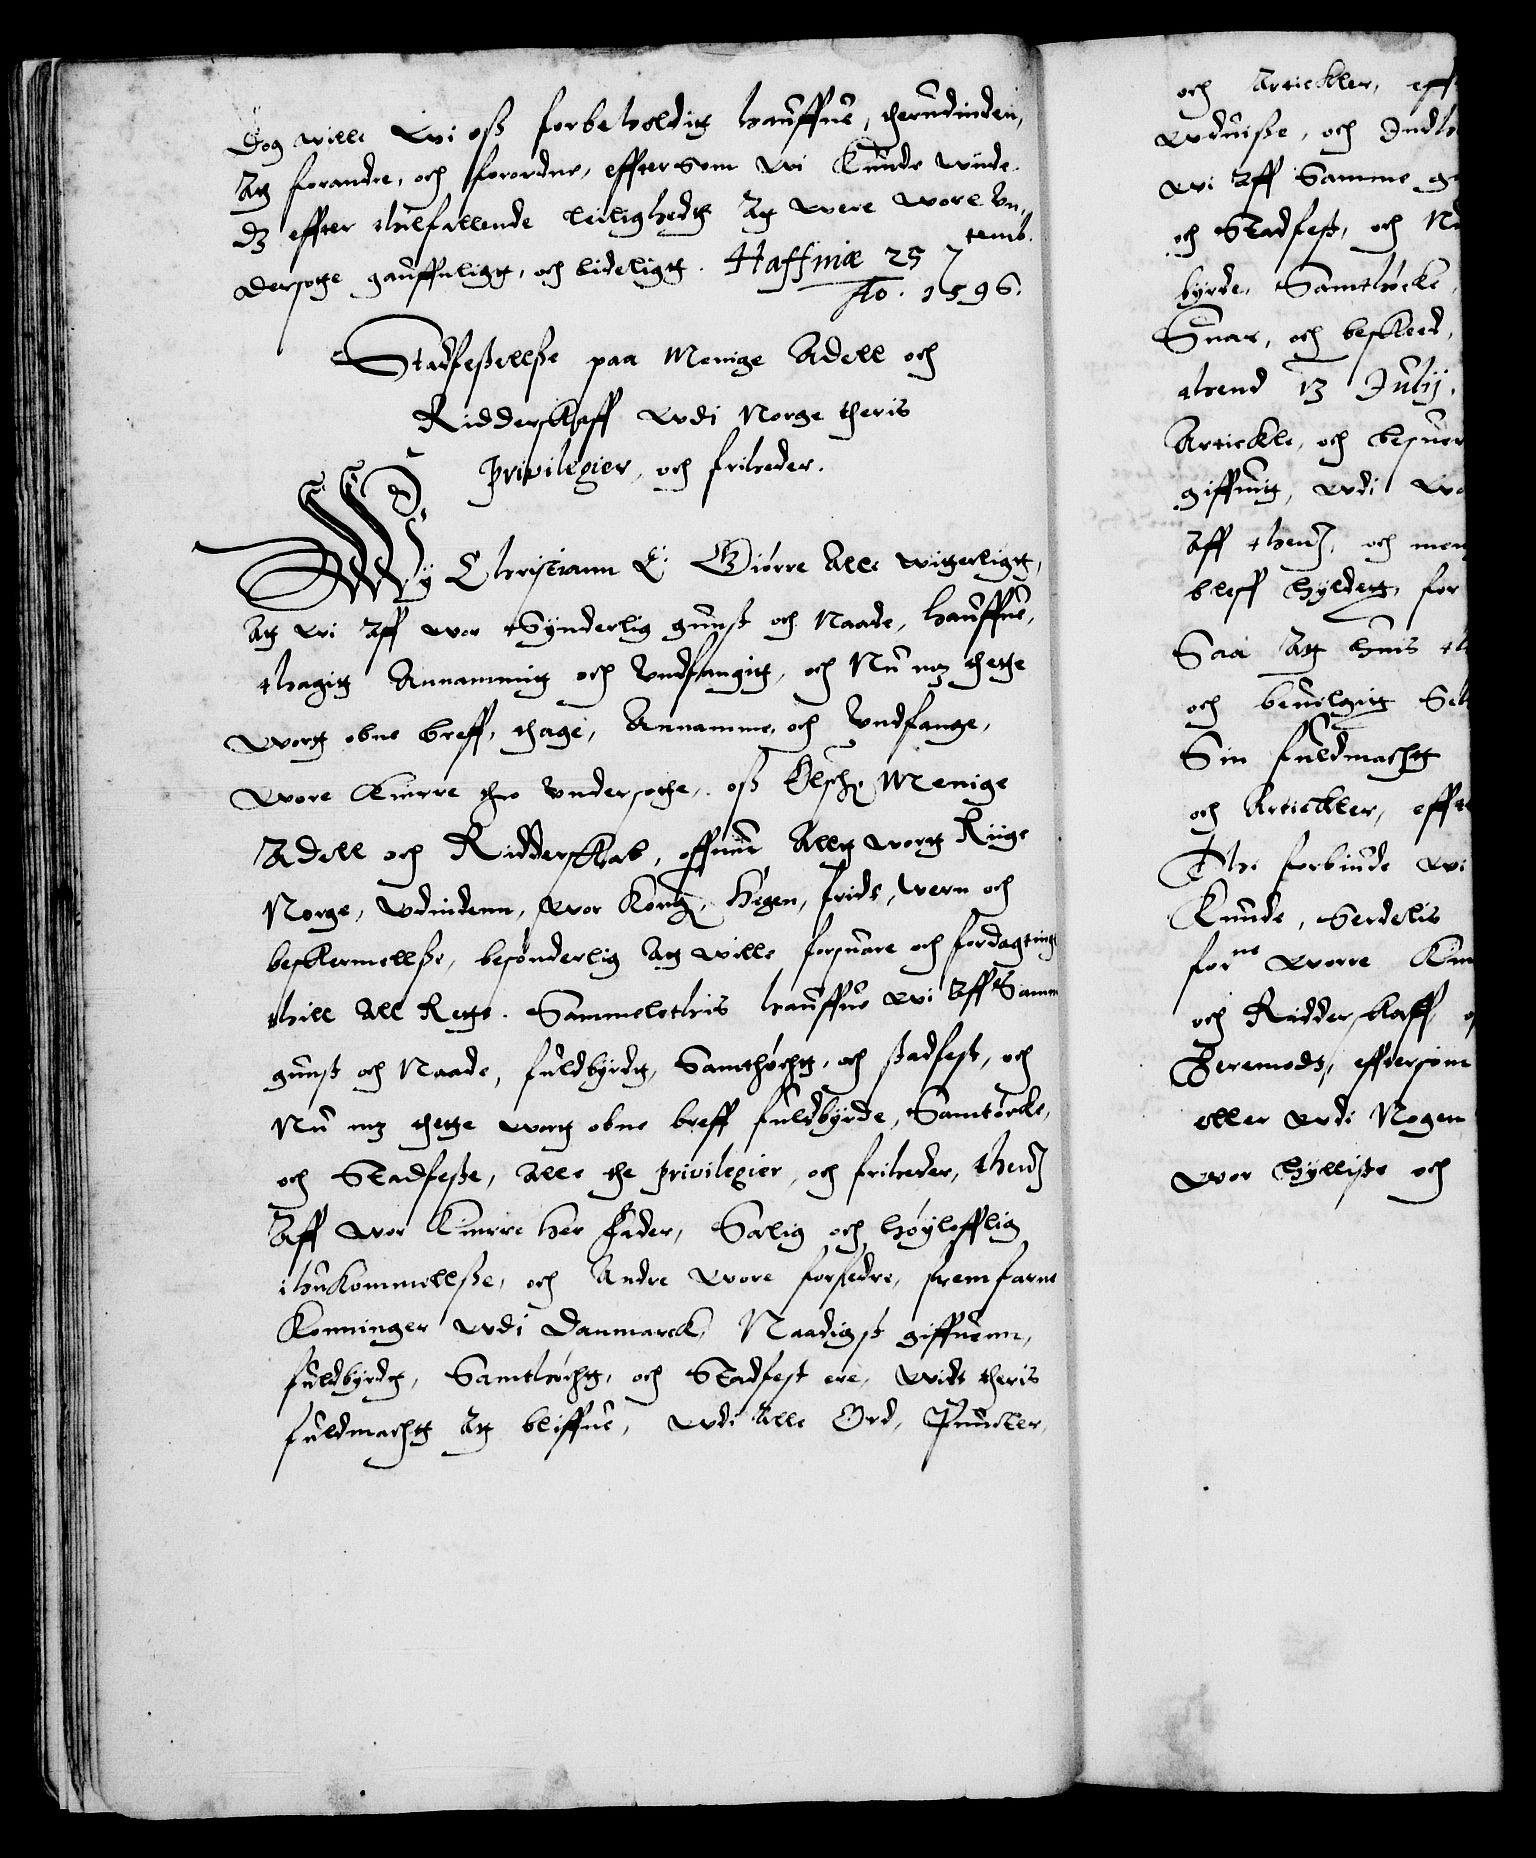 Dog wille wi oss forbeholdig hauffue, therudinden,
Att forandre, och forordne, effter som wi kunde winde
dz effter thilfallende leilighedtt att were wore Un-
dersotte gauffnligtt, och lideligtt. Haffniæ 25 7temb.
Ao. 1596.
Stadfestellsse paa Menige Adell och
Ridderskaff wdi Norge theris
Privilegier, och friheder.
Wy Christiann &: Giörre Alle witterligtt,
Att wi Aff wor Synderlig gunst och Naade, hauffue,
thagitt Annammitt och Undfangitt, och Nu mz thette
wortt obne breff, thage, Annamme, och Undfange,
wore kierre tro Undersotte, oss Elsch: Menige
Adell och Ridderskab, offuer Altt wortt Riige
Norge, Udindenn, wor Kong: hegen, frids, wern och
beskermellsse, besönderlig Att wille forsuare och fordagtinge
thill All Rette. Sammeledis hauffue wi Aff Samme
gunst och Naade, fuldbyrdt, Samthöchtt, och stadfest, och
Nu mz thette wortt obne breff fuldbyrde, Samtöcke,
och Stadfeste, Alle the privilegier, och friheder, thend
Aff wor kierre her Fader, Salig och höylofflig
ihukommellsse, och Andre wore forfedre, fremfarne
Konninger wdi Danmarck, Naadigst giffuenn,
fuldbyrdt, Samthöchtt, och Stadfest ere, widt theris
fuldmachtt Att bliffue, wdi Alle Ord, Puncter,
och Artickler, eff
wduisse, och Indh
wi Aff Samme g
och Stadfest, och N
byrde, Samthöcke,
Suar, och beskeed,
thend 13 Julij.
Artickle, och besuer
giffuitt, wdi
Aff thend, och men
bleff hyldett, for
Saa Att huis th
och beuilgitt Sel
Sin fuldmachtt
och Artickler, effte
Thi forbiude wi
kunde, Serdelis
forne worre kie
och Ridderskaff
Heremodt, efftersom
eller wdi Nogen
wor hylliste och